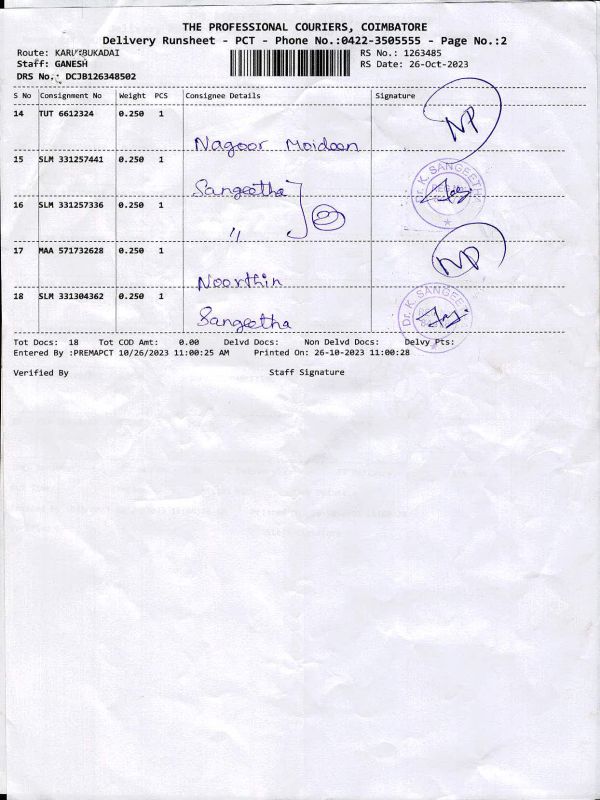 THE PROFESSIONAL COURIERS, COIMBATORE
Delivery Runsheet - PCT - Phone No.:0422-3505555 - Page No.:2
Route: KARUMBUKADAI RS No.: 1263485
Staff: GANESH RS Date: 26-Oct-2023
DRS No.: DCJB126348502
S No Consignment No Weight PCS Consignee Details Signature
14 TUT 6612324 0.250 1
NP
Nagoor Moideen
15 SLM 331257441 0.250 1
Sangeetha Dr. K. SANGEETHA
16 SLM 331257336 0.250 1
"
17 MAA 571732628 0.250 1
NP
Noorthin
18 SLM 331304362 0.250 1
Sangeetha Dr. K. SANGEETHA
Tot Docs: 18 Tot COD Amt: 0.00 Delvd Docs: Non Delvd Docs: Delvy Pts:
Entered By :PREMAPCT 10/26/2023 11:00:25 AM Printed On: 26-10-2023 11:00:28
Verified By Staff Signature